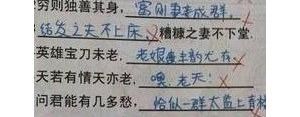 穷则独善其身，富则妻妾成群。
结发之夫不上床，糟糠之妻不下堂.
英雄宝刀未老，老娘丰韵犹存.
天若有情天亦老，嘿,老天!
问君能有几多愁，恰似一群太监上青楼